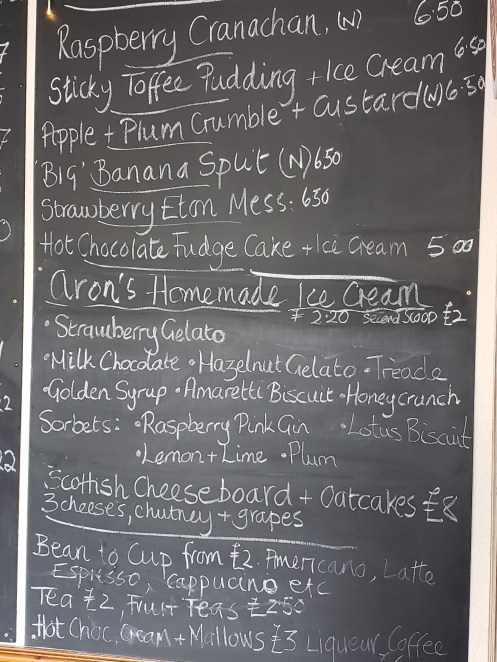 Raspberry Cranachan, (N) 6.50
Sticky Toffee Pudding + Ice Cream 6.50
Apple + Plum Crumble + Custard (N) 6.50
'Big' Banana Split (N) 6.50
Strawberry Eton Mess: 6.50
Hot Chocolate Fudge Cake + Ice Cream 5.00
Aron's Homemade Ice Cream
£ 2.20 Second Scoop £2
• Strawberry Gelato
• Milk Chocolate • Hazelnut Gelato • Treacle
• Golden Syrup • Amaretti Biscuit • Honeycrunch
Sorbets: • Raspberry Pink Gin • Lotus Biscuit
• Lemon + Lime • Plum
Scottish Cheeseboard + Oatcakes £8
3 cheeses, chutney + grapes
Bean to Cup from £2. Americano, Latte
Espresso, Cappucino etc
Tea £2, Fruit Teas £2.50
Hot Choc, Cream + Mallows £3 Liqueur, Coffee